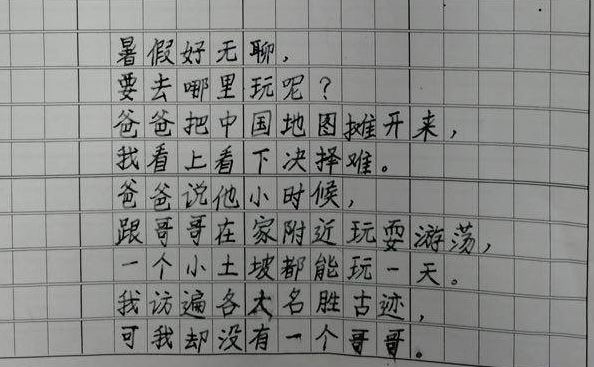 暑假好无聊，
要去哪里玩呢？
爸爸把中国地图摊开来，
我看上看下决择难。
爸爸说他小时候，
跟哥哥在家附近玩耍游荡，
一个小土坡都能玩一天。
我访遍各大名胜古迹，
可我却没有一个哥哥。